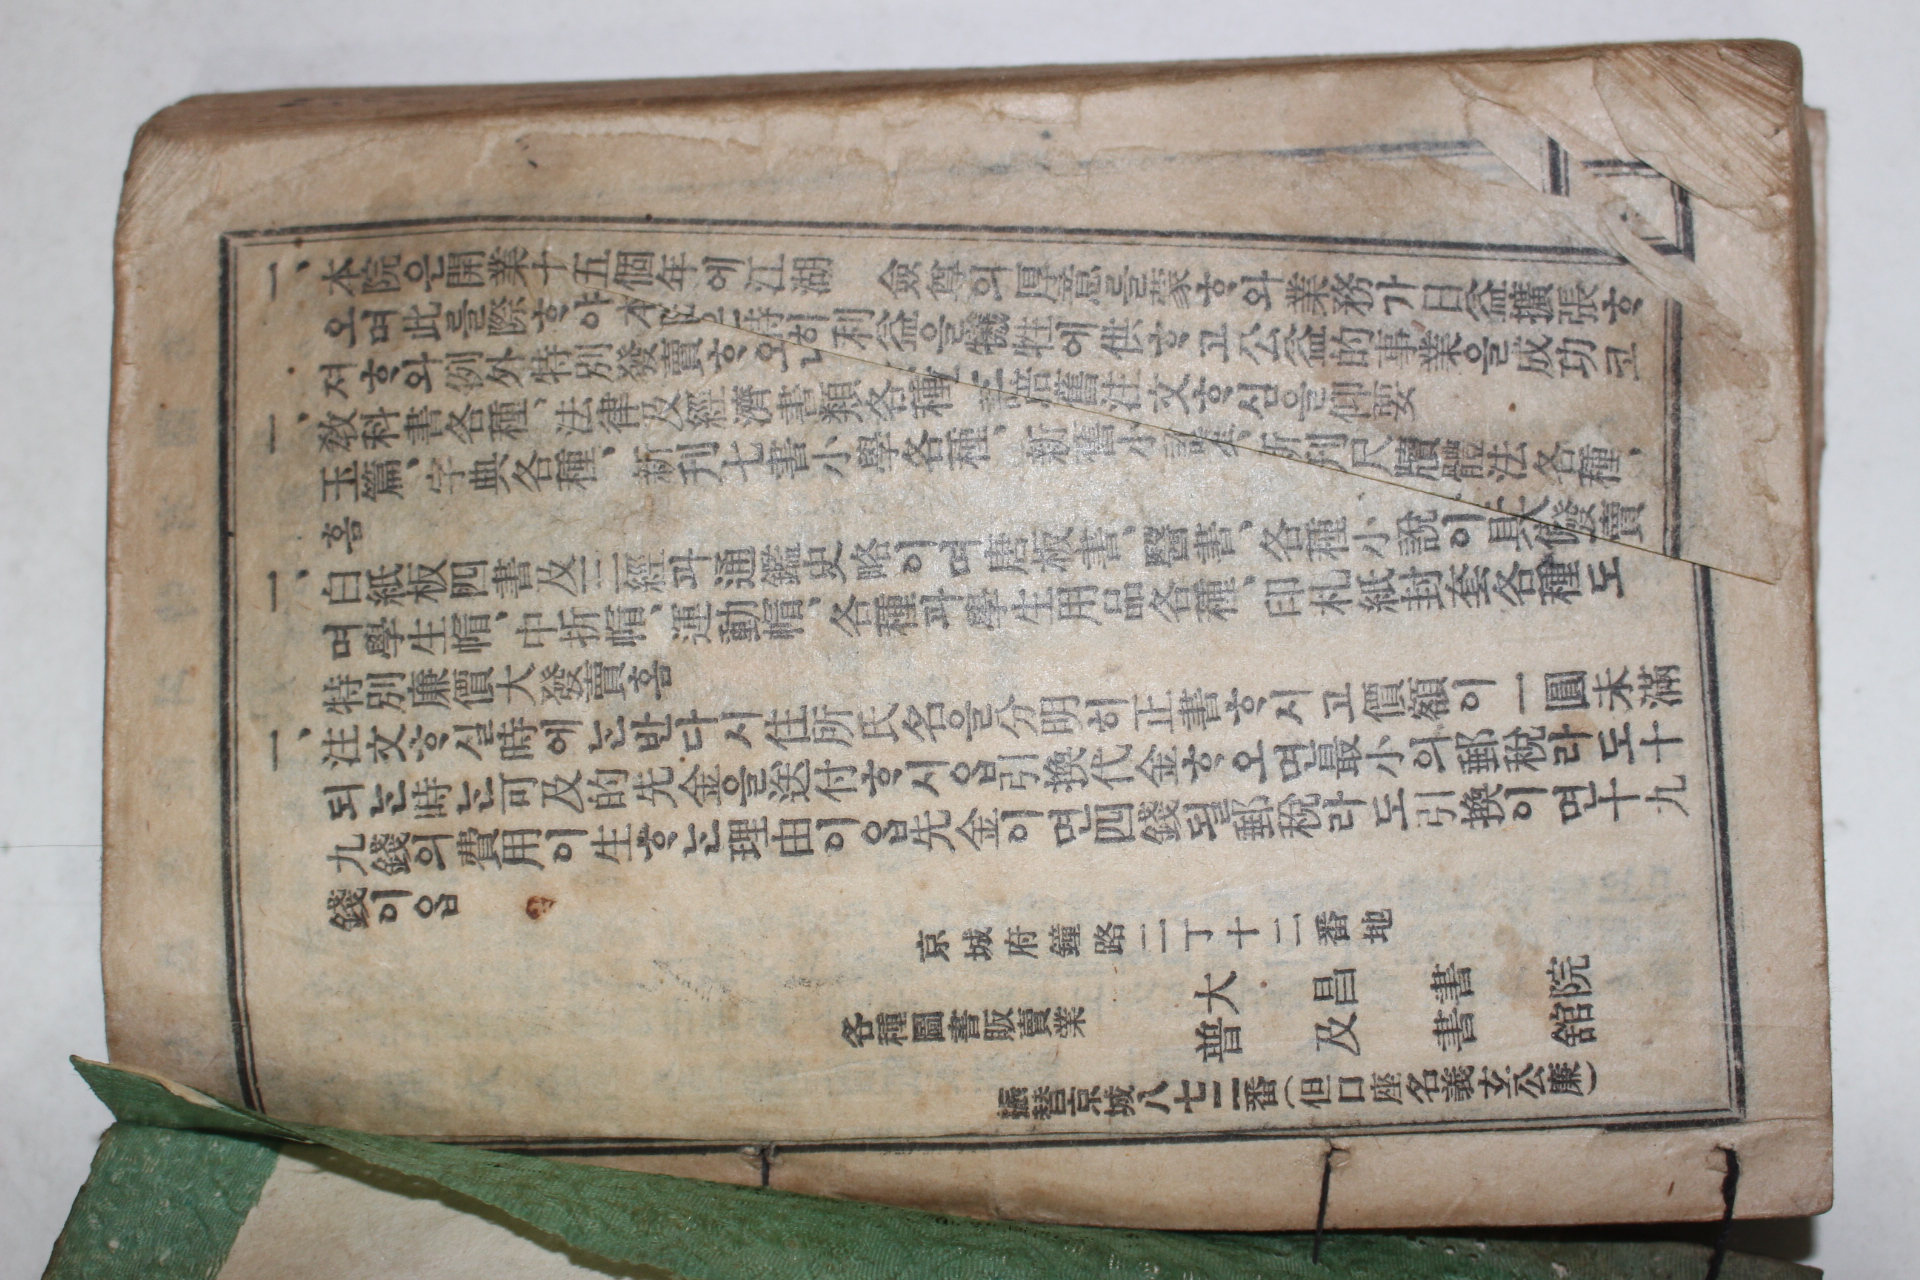 一、本院은開業十五個年에江湖 僉尊의厚意를蒙ᄒᆞ와業務가日益擴張ᄒᆞ
오며此를際ᄒᆞ야本院特히利益을犧牲에供ᄒᆞ고公益的事業을成功코
져ᄒᆞ와例外特別發賣ᄒᆞ오니 倍舊注文ᄒᆞ심을仰要
一、敎科書各種、法律及經濟書類各種、
玉篇、字典各種、新刊七書小學各種、新舊小說 新刊尺牘體法各種、
홈
一、白紙板四書及三經과通鑑史略이며唐板書、醫書、各種小說이具備 大發賣
며學生帽、中折帽、運動帽、各種과學生用品各種、印札紙封套各種도
特別廉價大發賣홈
一、注文ᄒᆞ실時에ᄂᆞᆫ반다시住所氏名을分明히正書ᄒᆞ시고價額이一圓未滿
되ᄂᆞᆫ時ᄂᆞᆫ可及的先金을送付ᄒᆞ시압引換代金ᄒᆞ오면最小의郵稅라도十
九錢의費用이生ᄒᆞᄂᆞᆫ理由이압先金이면四錢될郵稅라도引換이면十九
錢이압
京城府鐘路二丁十二番地
各種圖書販賣業
大昌書院
普及書舘
振替京城八七二番(但口座名義玄公廉)